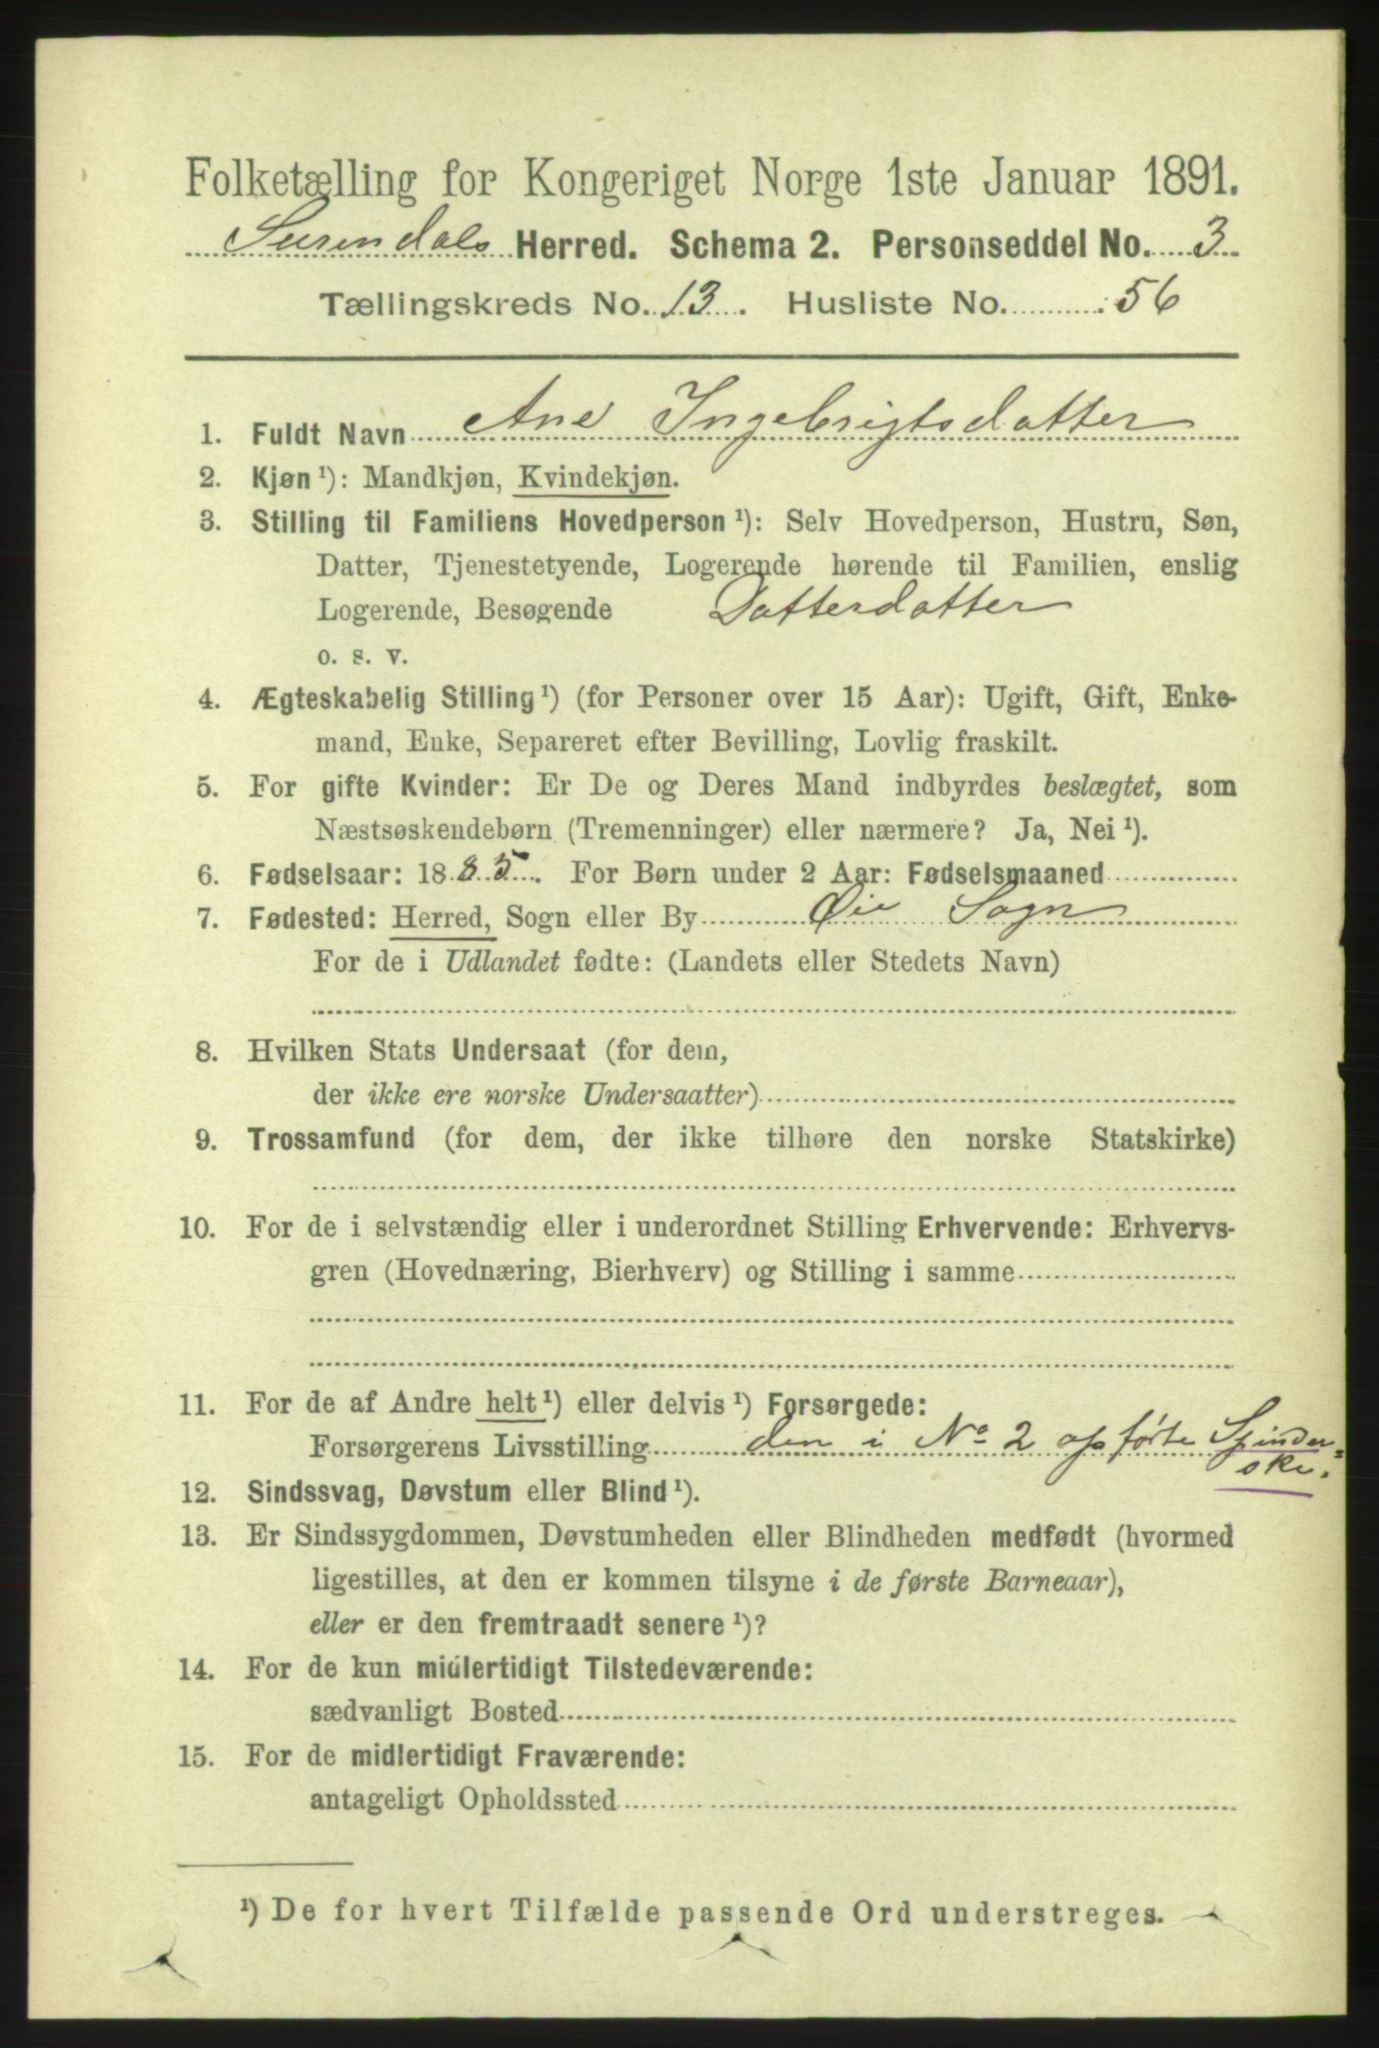 Folketælling for Kongeriget Norge 1ste Januar 1891.
Surendals Herred. Schema 2. Personseddel No. 3
Tællingskreds No. 13. Husliste No. 56
1. Fuldt Navn Ane Ingebrigtsdatter
2. Kjøn ¹): Mandkjøn, Kvindekjøn.
3. Stilling til Familiens Hovedperson ¹): Selv Hovedperson, Hustru, Søn,
Datter, Tjenestetyende, Logerende hørende til Familien, enslig
Logerende, Besøgende Datterdatter
o. s. v.
4. Ægteskabelig Stilling ¹) (for Personer over 15 Aar): Ugift, Gift, Enke-
mand, Enke, Separeret efter Bevilling, Lovlig fraskilt.
5. For gifte Kvinder: Er De og Deres Mand indbyrdes beslægtet, som
Næstsøskendebørn (Tremenninger) eller nærmere? Ja, Nei ¹).
6. Fødselsaar: 1885. For Børn under 2 Aar: Fødselsmaaned
7. Fødested: Herred, Sogn eller By Øie Sogn
For de i Udlandet fødte: (Landets eller Stedets Navn)
8. Hvilken Stats Undersaat (for dem,
der ikke ere norske Undersaatter)
9. Trossamfund (for dem, der ikke tilhøre den norske Statskirke)
10. For de i selvstændig eller i underordnet Stilling Erhvervende: Erhvervs-
gren (Hovednæring, Bierhverv) og Stilling i samme
11. For de af Andre helt ¹) eller delvis ¹) Forsørgede:
Forsørgerens Livsstilling den i No 2 opførte Spinder=
ske.
12. Sindssvag, Døvstum eller Blind ¹).
13. Er Sindssygdommen, Døvstumheden eller Blindheden medfødt (hvormed
ligestilles, at den er kommen tilsyne i de første Barneaar),
eller er den fremtraadt senere ¹)?
14. For de kun midlertidigt Tilstedeværende:
sædvanligt Bosted
15. For de midlertidigt Fraværende:
antageligt Opholdssted
¹) De for hvert Tilfælde passende Ord understreges.